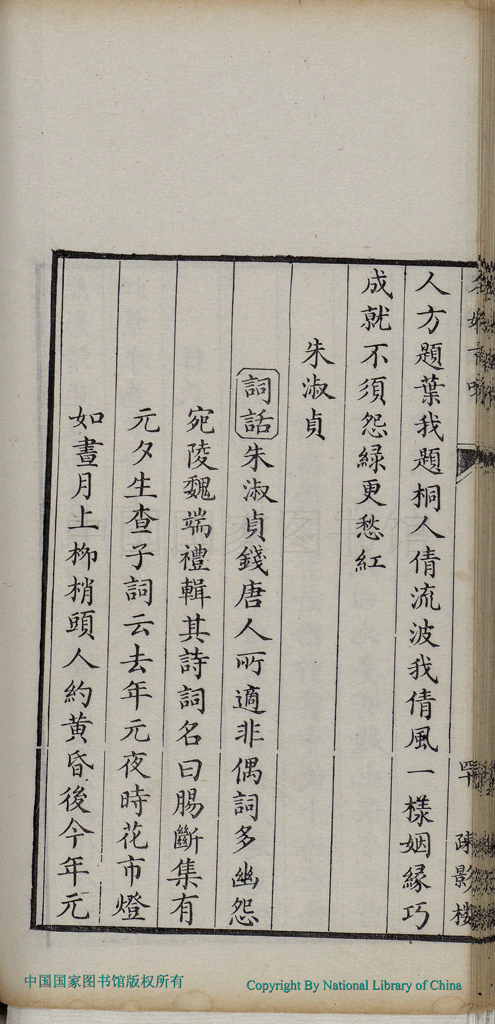 人方題葉我題桐人倩流波我倩風一樣姻緣巧
成就不須怨綠更愁紅
朱淑貞
詞話朱淑貞錢唐人所適非偶詞多幽怨
宛陵魏端禮輯其詩詞名曰腸斷集有
元夕生查子詞云去年元夜時花市燈
如晝月上柳梢頭人約黃昏後今年元
疎影樓
中国国家图书馆版权所有
Copyright By National Library of China